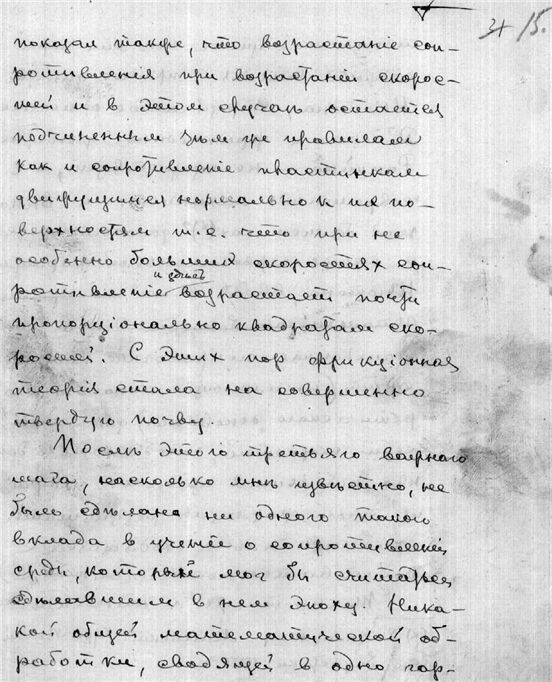 34 15.
показал также, что возрастаніе соп-
ротивленія при возрастаніи скорос-
тей и в этом случаѣ остается
подчиненным тѣм же правилам
как, и сопротивленіе пластинкам
движущимся нормально к их по-
верхностям т.е. что при не
особенно больших скоростях соп-
и здѣсь
ротивленіе возрастает почти
пропорціонально квадратам ско-
ростей. С этих пор фрикціонная
теорія стала на совершенно
твердую почву.
Послѣ этого третьяго важнаго
шага, насколько мнѣ извѣстно, не
было сдѣлано ни одного такого
вклада в ученіе о сопротивленіи
среды, который мог бы считаться
сдѣлавшим в нем эпоху. Ника-
кой общей математической об-
работки, сводящей в одно гар-